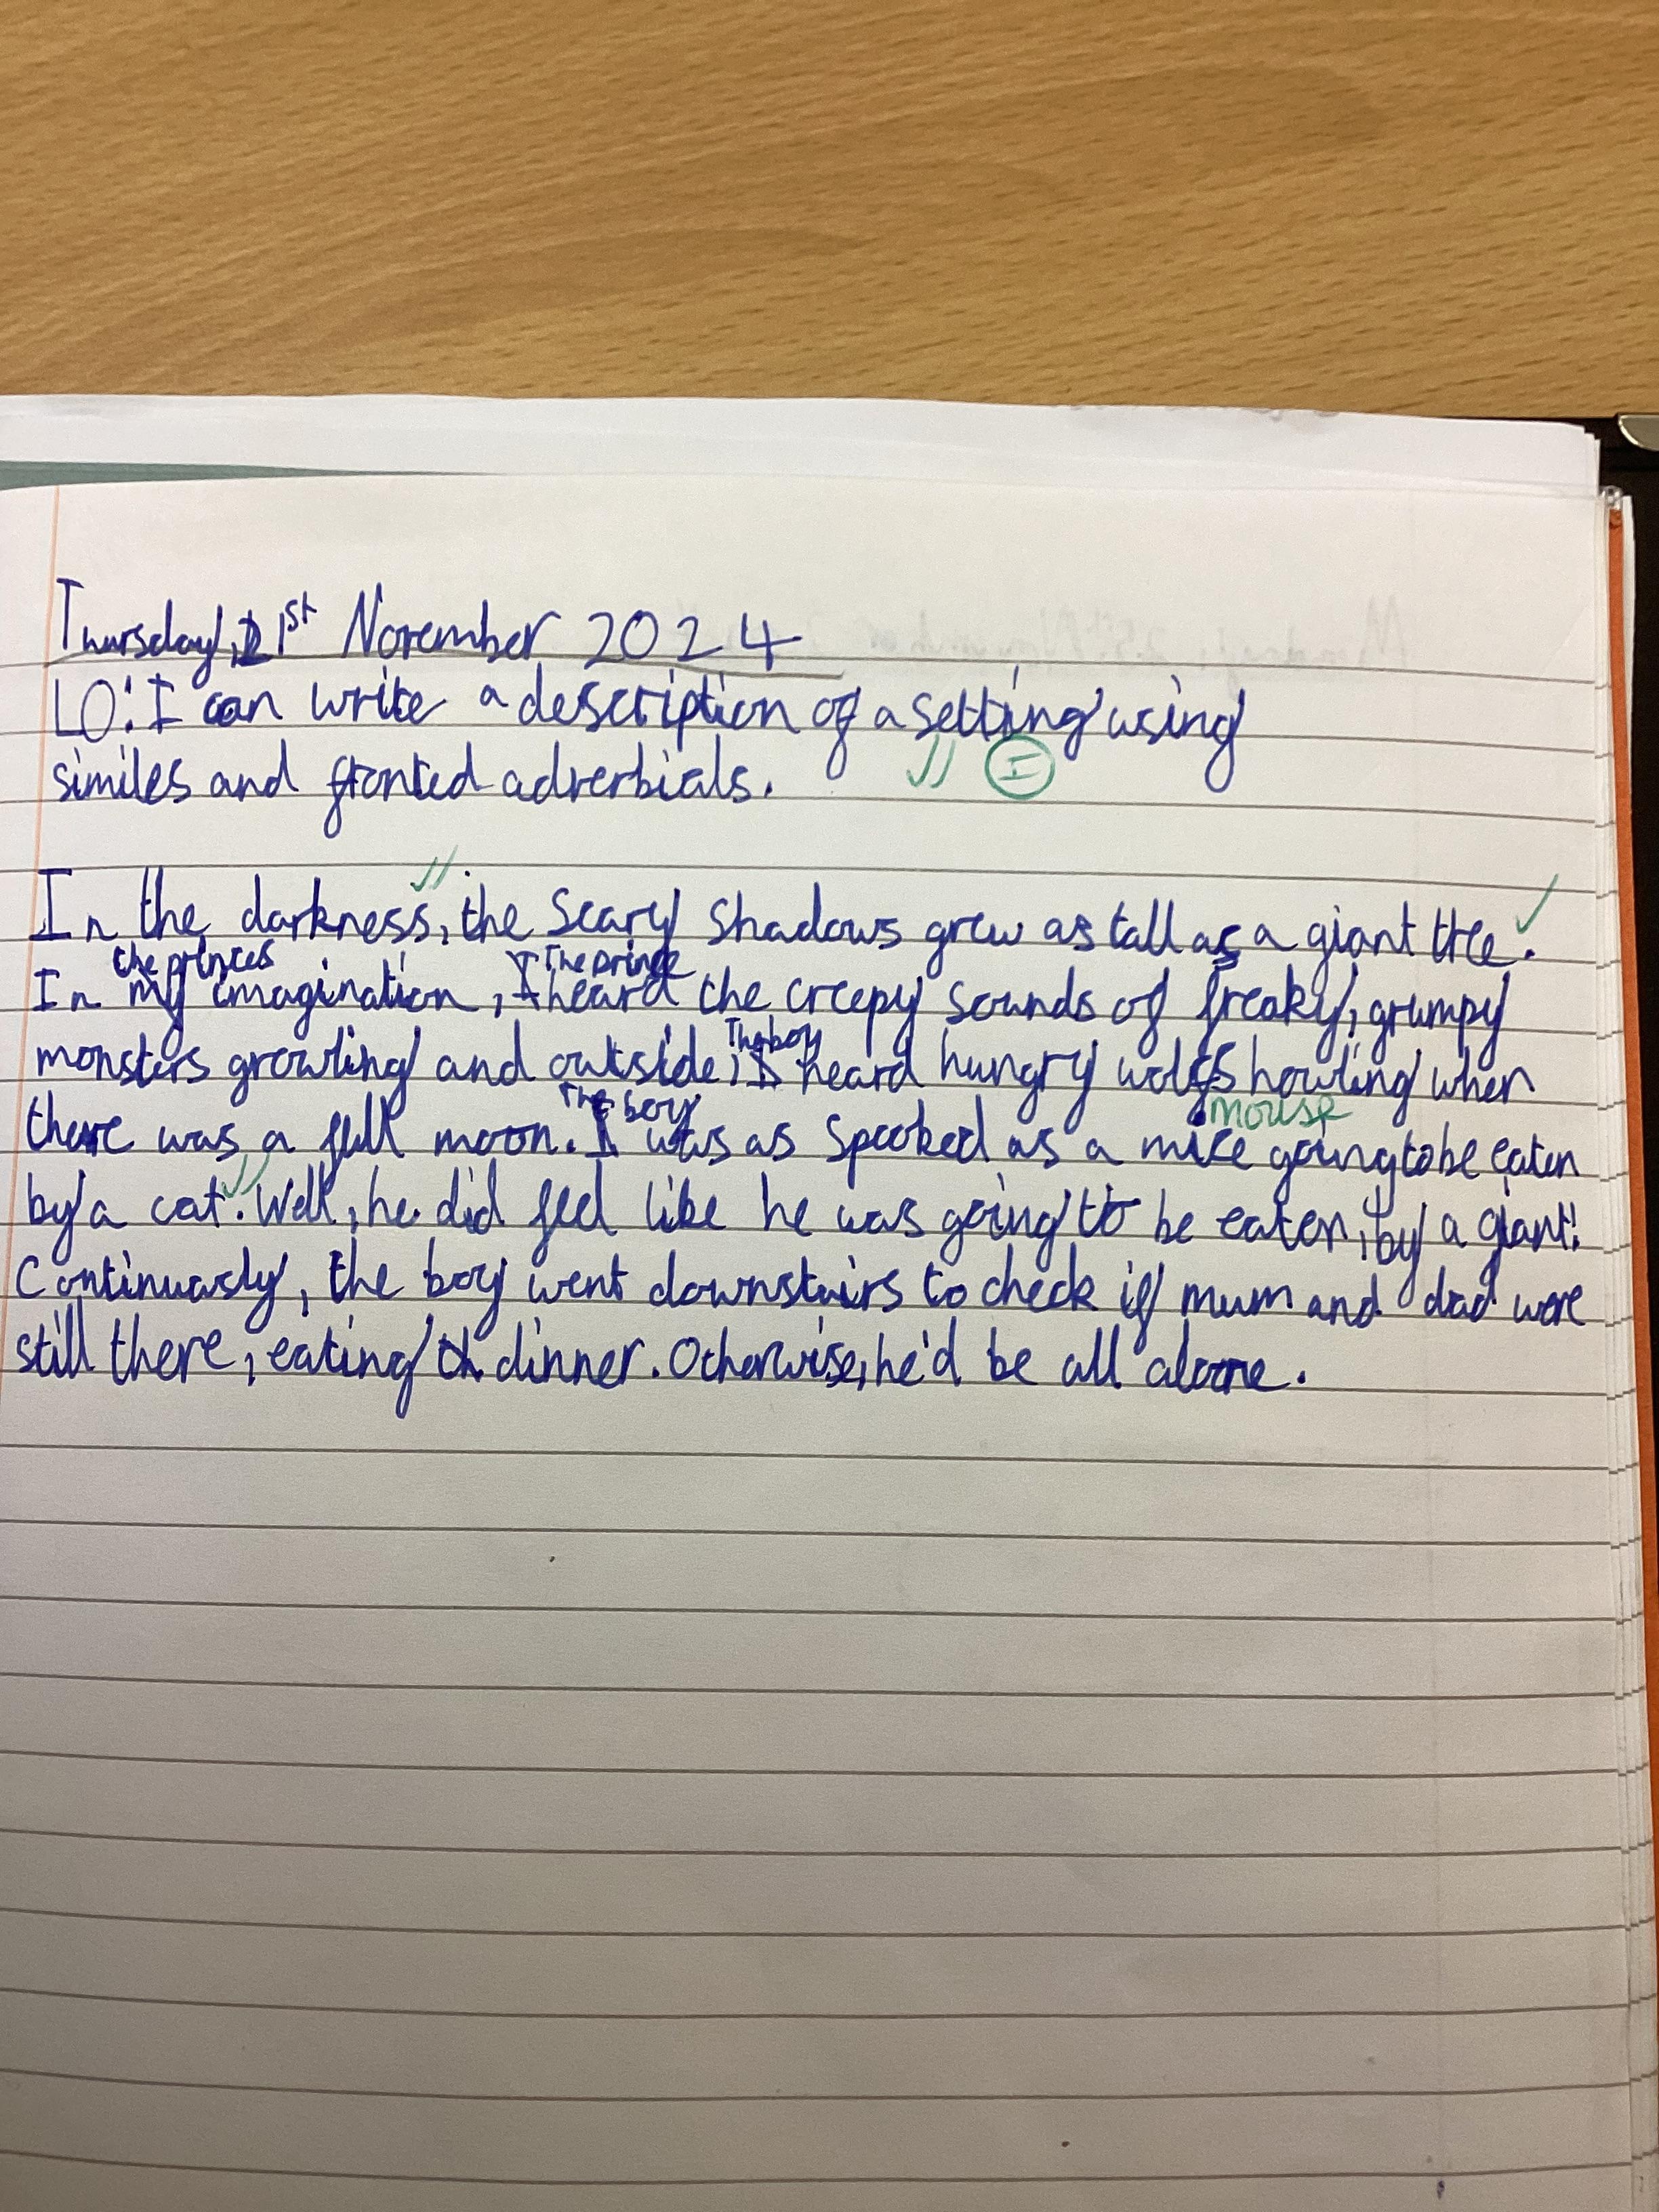 Thursday, 21st November 2024
LO: I can write a description of a setting using
similes and fronted adverbials.
I
In the darkness, the scary shadows grew as tall as a giant tree.
the princes The prince
In my imagination, I heard the creepy sounds of freaky, grumpy
The boy
monsters growling and outside, I heard hungry wolfs howling when
The boy mouse
there was a full moon. I was as spooked as a mice going to be eaten
by a cat. Well, he did feel like he was going to be eaten, by a giant!
Continuasly, the boy went downstairs to check if mum and dad were
still there, eating dinner. Otherwise, he'd be all alone.